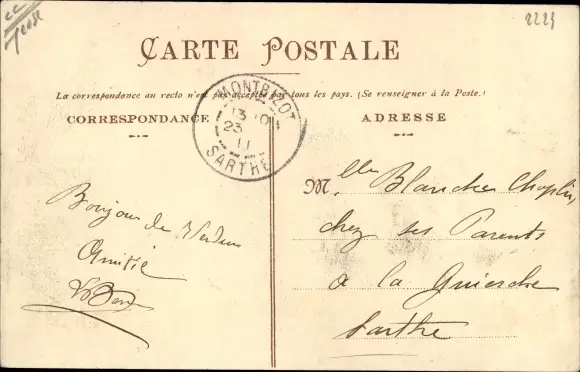 2223
CARTE POSTALE
La correspondance au recto n'est pas acceptée par tous les pays. (Se renseigner à la Poste.)
CORRESPONDANCE
ADRESSE
MONTBIZOT
13
23
11
SARTHE
Mlle Blanche Choplin
chez ses Parents
à la Guierche
Sarthe
Bonjour de Verdun
Amitié